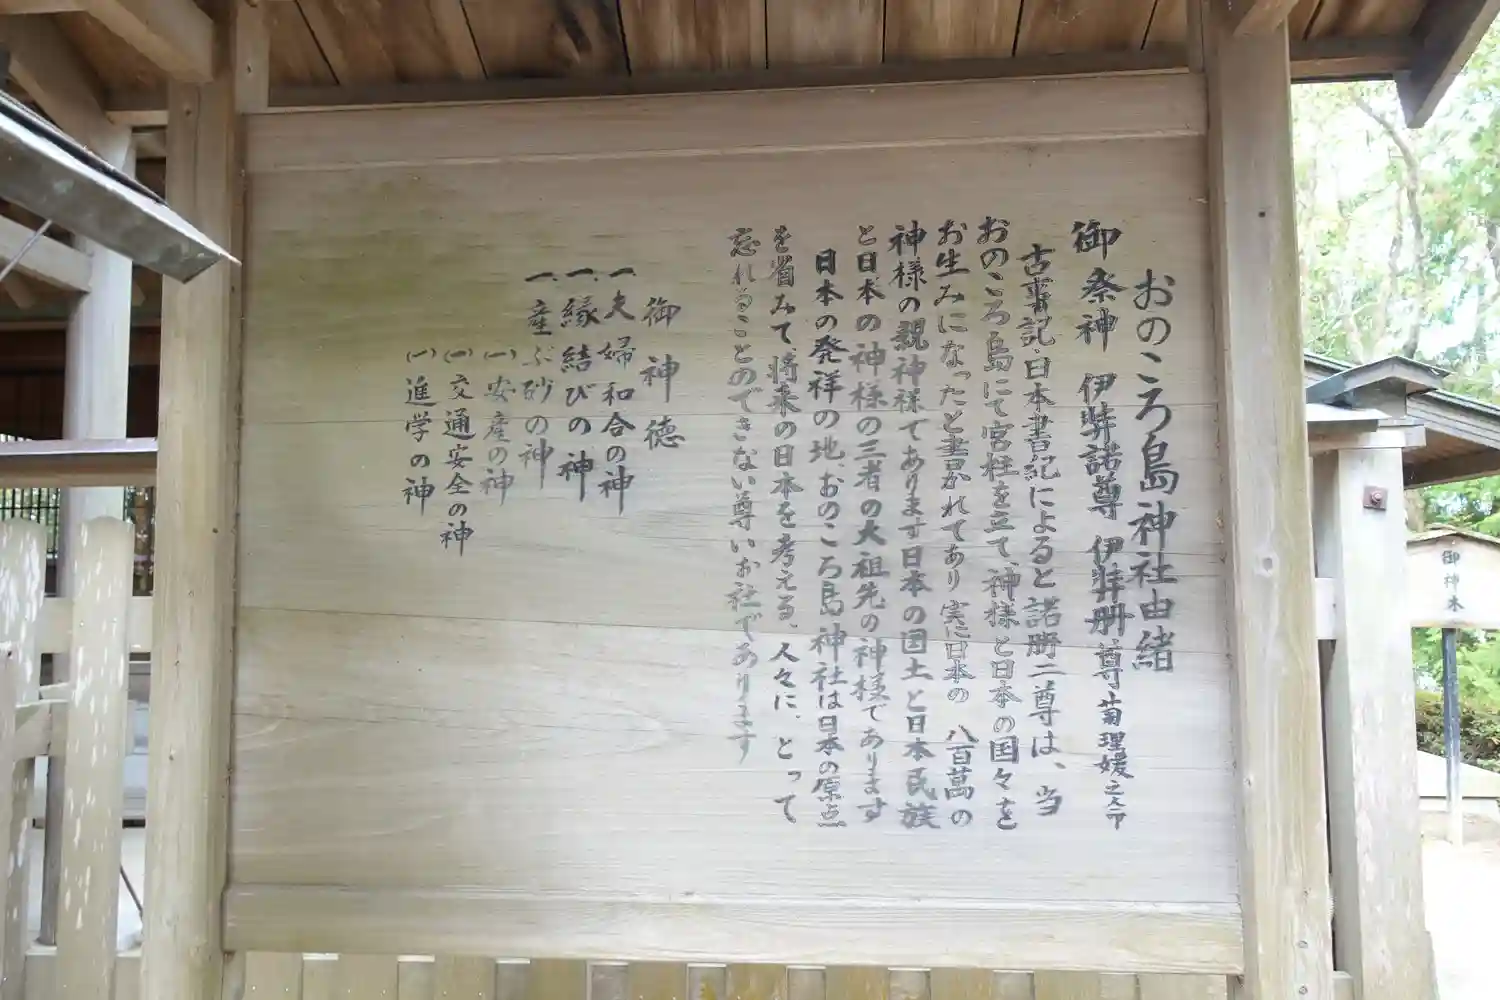 おのころ島神社由緒
御祭神 伊弉諾尊 伊弉册尊 菊理媛之命
古事記・日本書紀によると諾册二尊は、当
おのころ島にて宮柱を立て、神様と日本の国々を
お生みになったと書かれてあり 実に日本の 八百萬の
神様の親神様であります日本の国土と日本民族
と日本の神様の三者の大祖先の神様であります
日本の発祥の地、おのころ島神社は日本の原点
を省みて、将来の日本を考える、人々に、とって
忘れることのできない尊いお社であります
御神徳
一、夫婦和合の神
一、縁結びの神
一、産ぶ砂の神
(一)安産の神
(一)交通安全の神
(一)進学の神
御神木